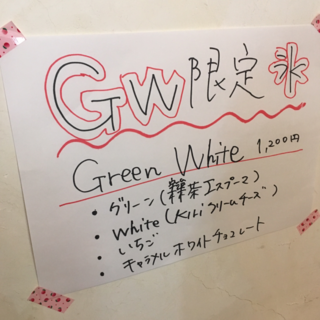 GW限定 氷
Green White 1,200円
・グリーン(抹茶エスプーマ)
・White(Kiriクリームチーズ)
・いちご
・キャラメルホワイトチョコレート